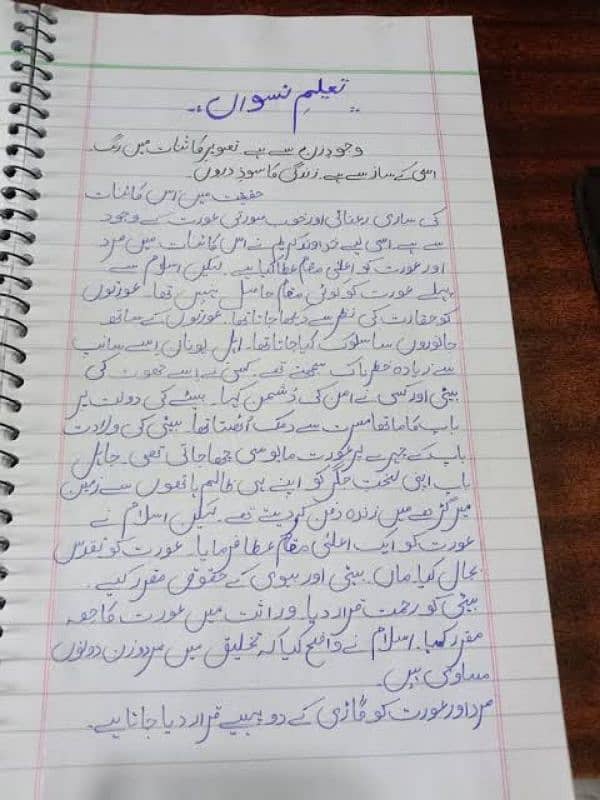 تعلیمِ نسواں
وجودِ زن سے ہے تصویرِ کائنات میں رنگ
اسی کے ساز سے ہے زندگی کا سوز دروں۔
حقیقت میں اس کائنات
کی ساری رعنائی اور خوب صورتی عورت کے وجود
سے ہے اسی لیے خداوند کریم نے اس کائنات میں مرد
اور عورت کو اعلیٰ مقام عطا کیا ہے۔ لیکن اسلام سے
پہلے عورت کو کوئی مقام حاصل نہیں تھا۔ عورتوں
کو حقارت کی نظر سے دیکھا جاتا تھا۔ عورتوں کے ساتھ
جانوروں سا سلوک کیا جاتا تھا۔ اہل یونان اسے سانپ
سے زیادہ خطرناک سمجھتے تھے۔ کسی نے اسے جھوٹ کی
بیٹی اور کسی نے امن کی دشمن کہا۔ بیٹے کی دولت پر
باپ کا ماتھا مسرت سے دمک اُٹھتا تھا۔ بیٹی کی ولادت
باپ کے چہرے پر عورت مایوسی چھا جاتی تھی۔ جاہل
باپ اپنی لخت جگر کو اپنے ہی ظالم ہاتھوں سے زمین
میں گڑھے میں زندہ دفن کر دیتے تھے۔ لیکن اسلام نے
عورت کو ایک اعلیٰ مقام عطا فرمایا۔ عورت کو تقدس
بحال کیا۔ ماں۔ بیٹی اور بیوی کے حقوق مقرر کیے۔
بیٹی کو رحمت قرار دیا۔ وراثت میں عورت کا حصہ
مقرر کیا۔ اسلام نے واضح کیا کہ تخلیق میں مرد و زن دونوں
مساوی ہیں۔
مرد اور عورت کو گاڑی کے دو پہیے قرار دیا جاتا ہے۔